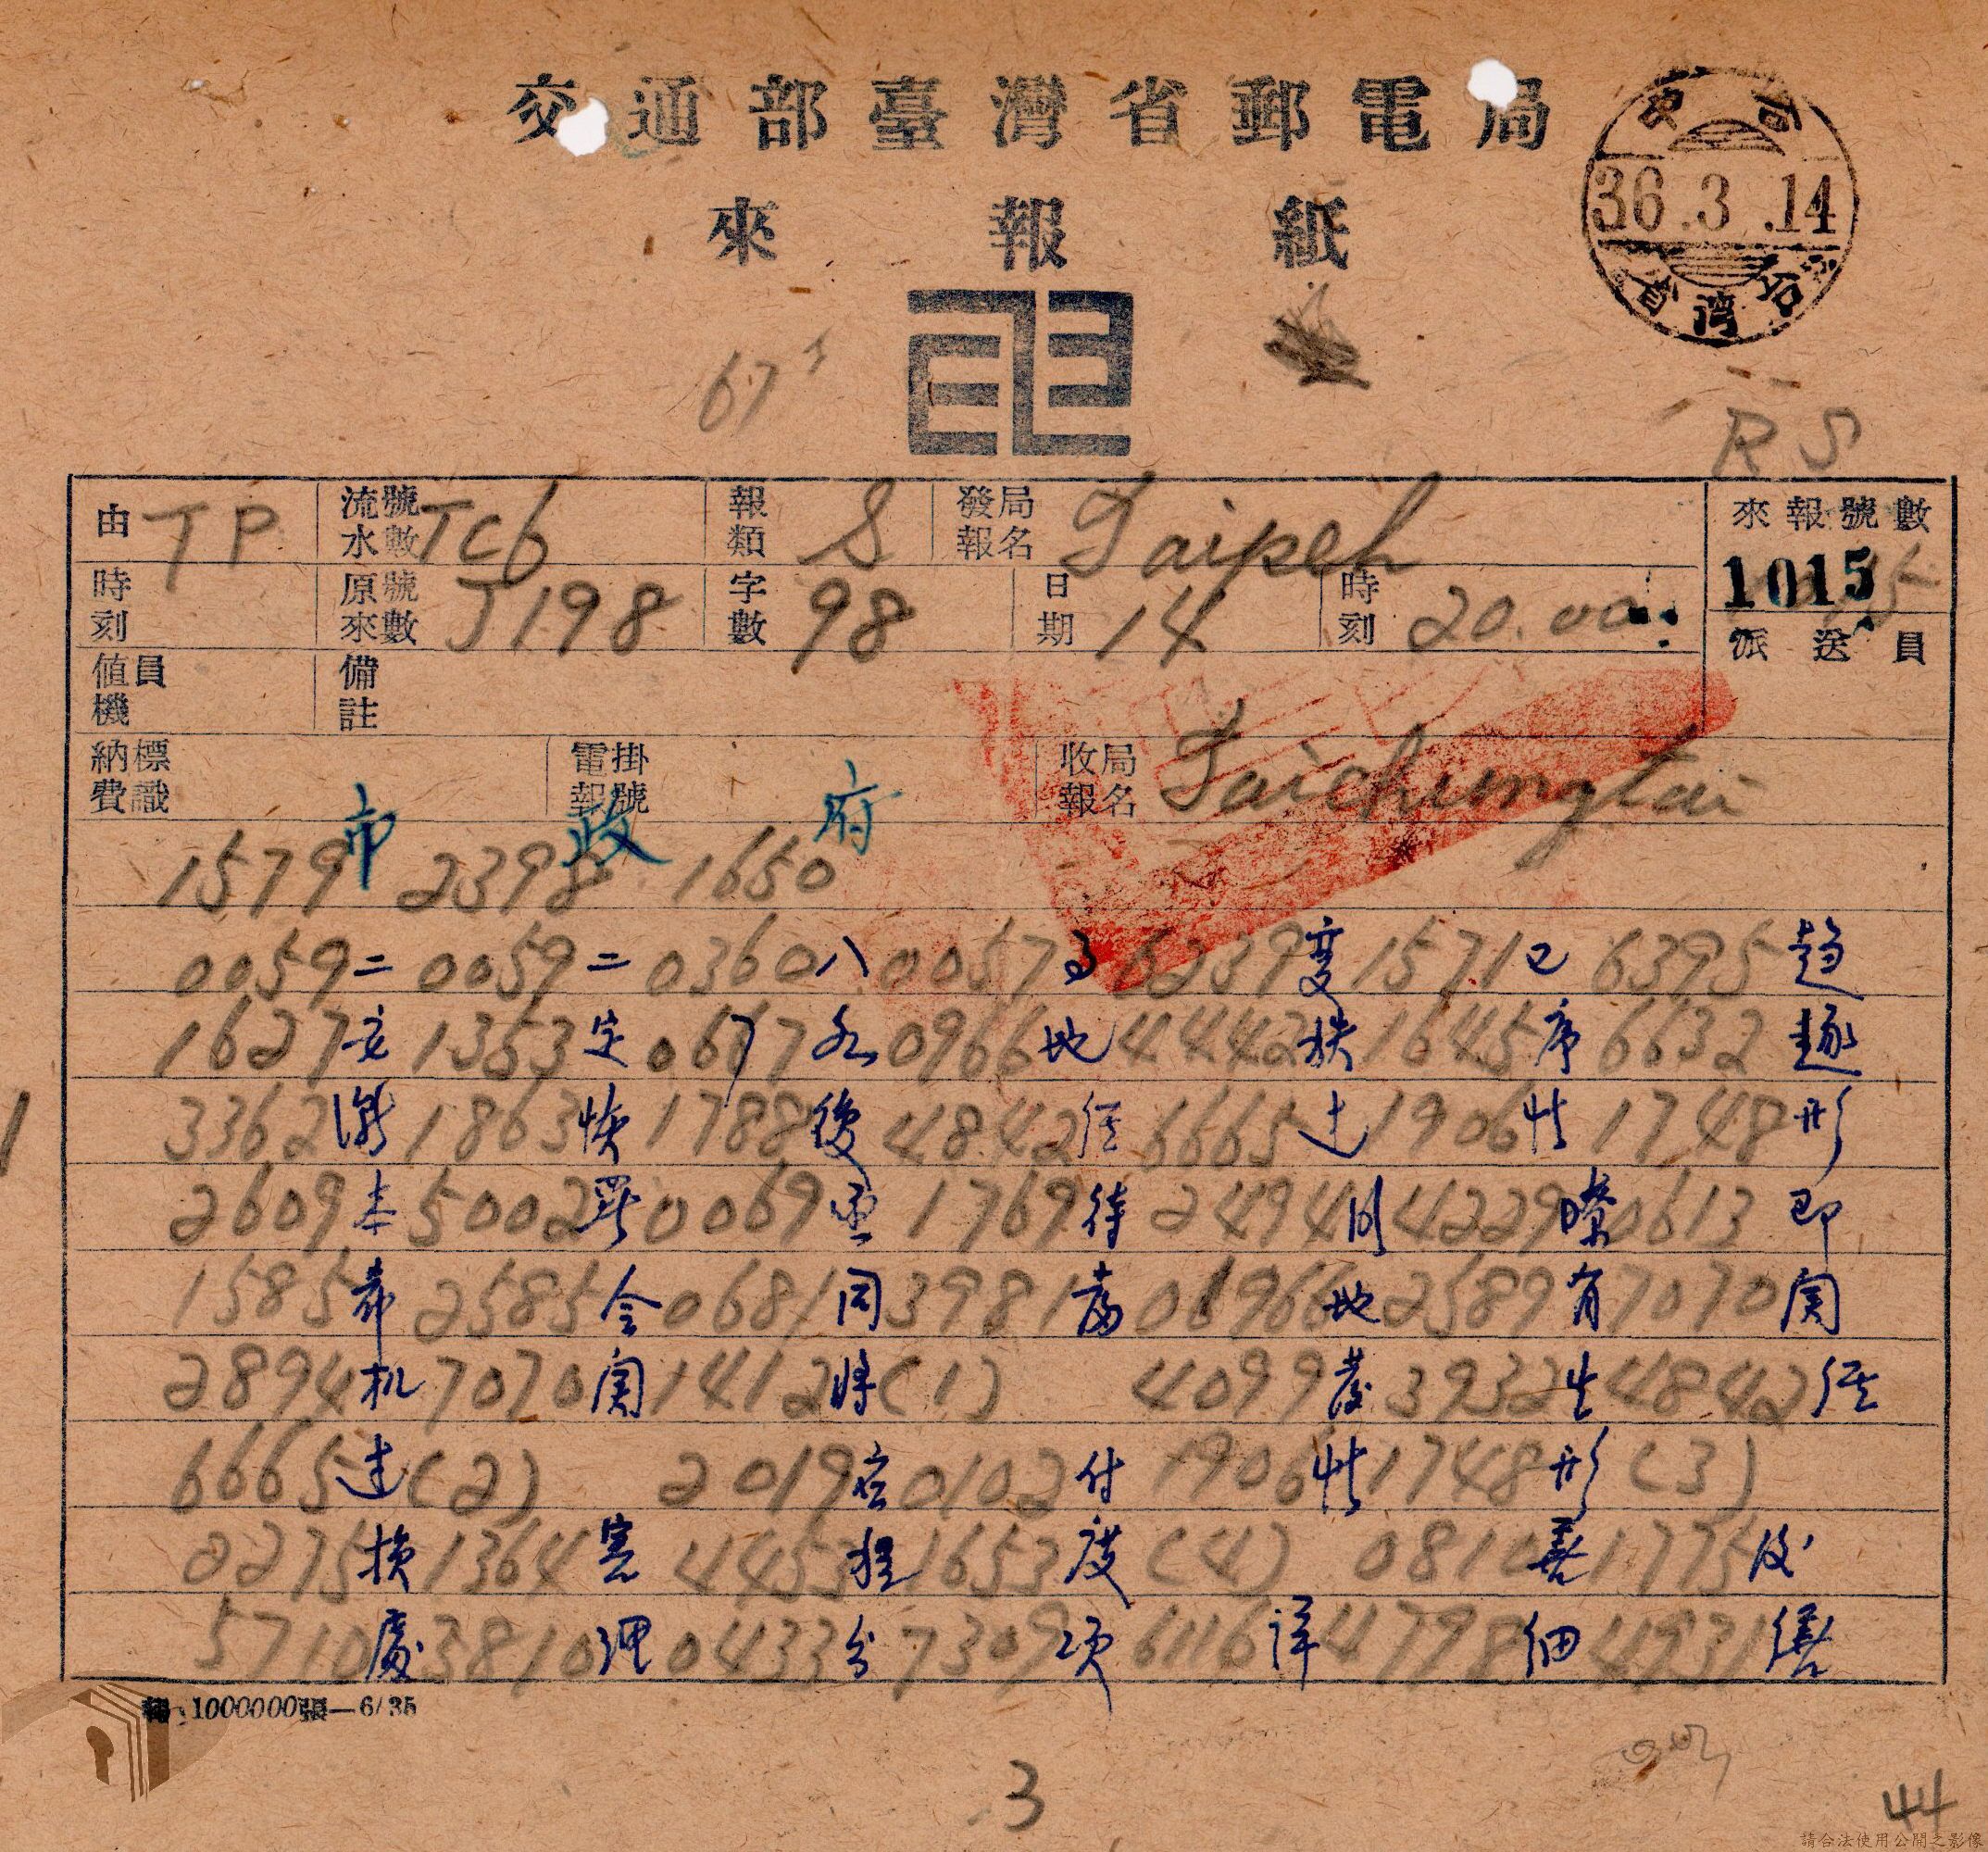 交通部臺灣省郵電局
來報紙
36.3.14
台灣省
67
RS
由 TP 流水號數 Tc6 報類 S 發報局名 Taipeh 來報號數
1015
時刻 原來號數 J198 字數 98 日期 14 時刻 20.00 派送員
值機員 備註
納費標識 電報掛號 收報局名 Taichungtai
市 政 府
1579 2398 1650
0059 二 0059 二 0360 八 0057 事 6239 變 1571 已 6395 趋
1627 安 1353 定 0677 各 0966 地 4442 秩 1645 序 6632 逐
3362 漸 1863 恢 1788 復 4842 经 6665 过 1906 情 1748 形
2609 本 5002 署 0069 亟 1769 待 2494 明 4229 瞭 0613 即
1585 希 2585 会 0681 同 3981 當 0966 地 2589 有 7070 関
2894 机 7070 関 1412 將 (1) 4099 發 3932 生 4842 经
6665 过 (2) 2019 应 0102 付 1906 情 1748 形 (3)
2275 損 1364 害 4453 程 1653 度 (4) 0810 善 1775 後
5710 處 3810 理 0433 分 7309 项 6116 詳 4798 細 4931 繕
報：1000000張—6/35
3
44
請合法使用公開之影像